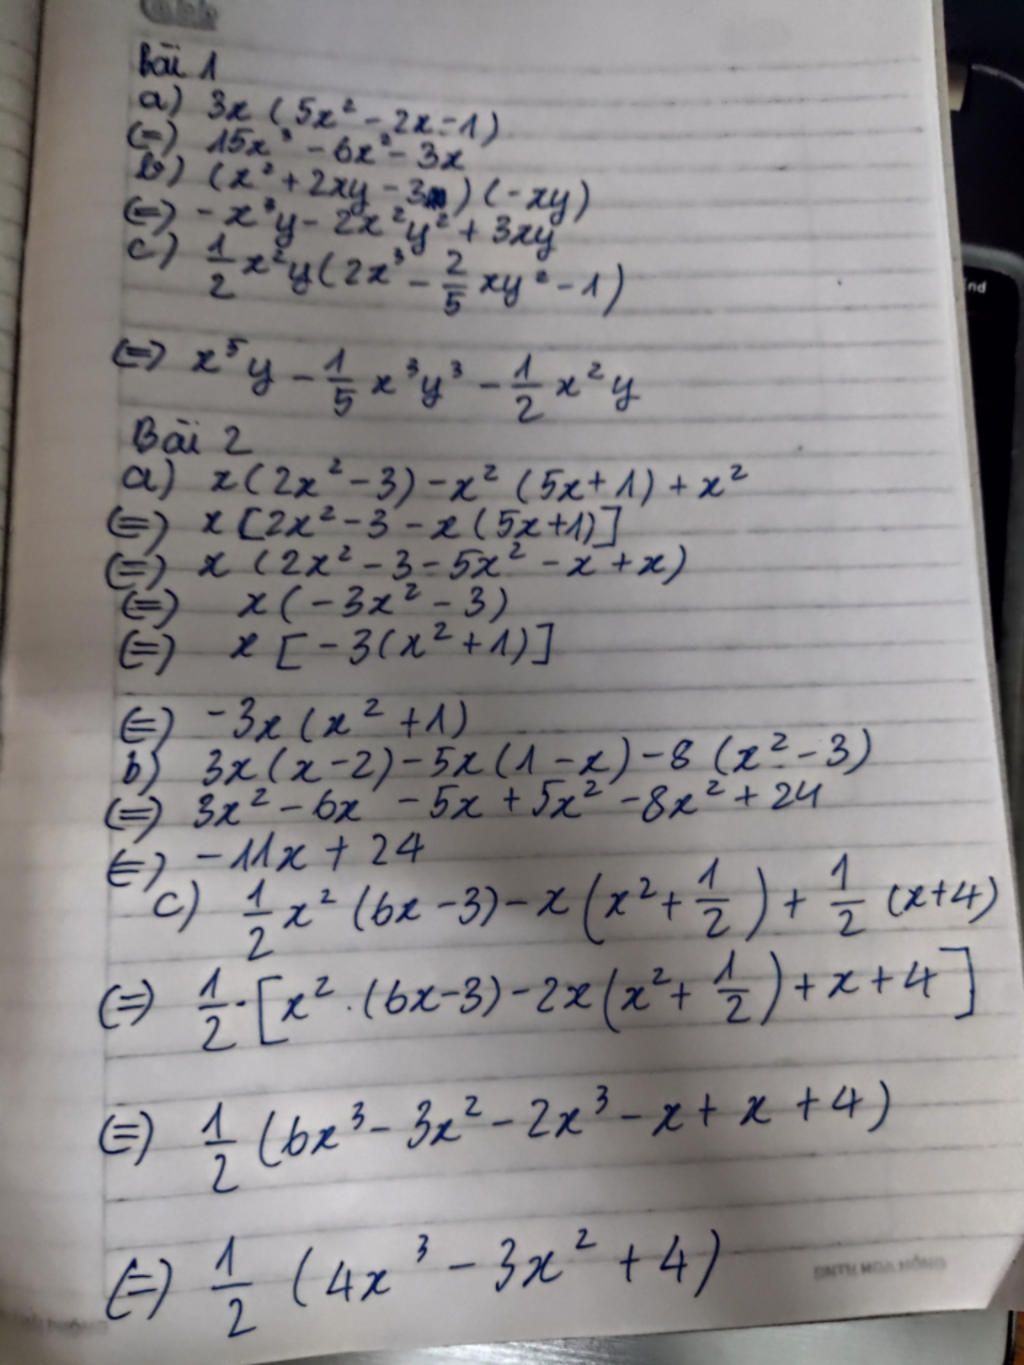 Bài 1
a) 3x (5x² - 2x - 1)
(=) 15x³ - 6x² - 3x
b) (x² + 2xy - 3) (-xy)
(=) -x³y - 2x²y² + 3xy
c) 1/2 x²y (2x³ - 2/5 xy² - 1)
(=) x⁵y - 1/5 x³y³ - 1/2 x²y
Bài 2
a) x(2x² - 3) - x² (5x + 1) + x²
(=) x [2x² - 3 - x (5x + 1)]
(=) x (2x² - 3 - 5x² - x + x)
(=) x (-3x² - 3)
(=) x [-3(x² + 1)]
(=) -3x (x² + 1)
b) 3x(x - 2) - 5x(1 - x) - 8 (x² - 3)
(=) 3x² - 6x - 5x + 5x² - 8x² + 24
(=) -11x + 24
c) 1/2 x² (6x - 3) - x (x² + 1/2) + 1/2 (x + 4)
(=) 1/2 · [x² . (6x - 3) - 2x (x² + 1/2) + x + 4]
(=) 1/2 (6x³ - 3x² - 2x³ - x + x + 4)
(=) 1/2 (4x³ - 3x² + 4)
nd